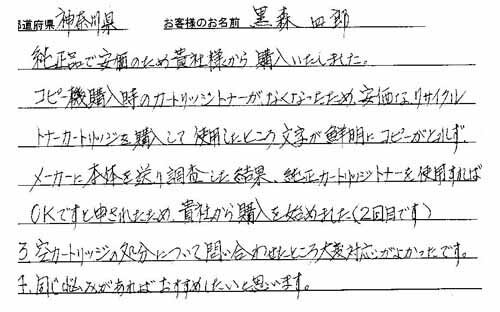 都道府県 神奈川県 お客様のお名前 黒森 四郎
純正品で安価のため貴社様から購入いたしました。
コピー機購入時のカートリッジトナーがなくなったため、安価なリサイクル
トナーカートリッジを購入して使用したところ文字が鮮明にコピーがとれず、
メーカーに本体を送り調査した結果、純正カートリッジトナーを使用すれば
OKですと申されたため、貴社から購入を始めました(2回目です)
3.空カートリッジの処分について問い合わせたところ大変対応がよかったです。
4.同じ悩みがあればおすすめしたいと思います。